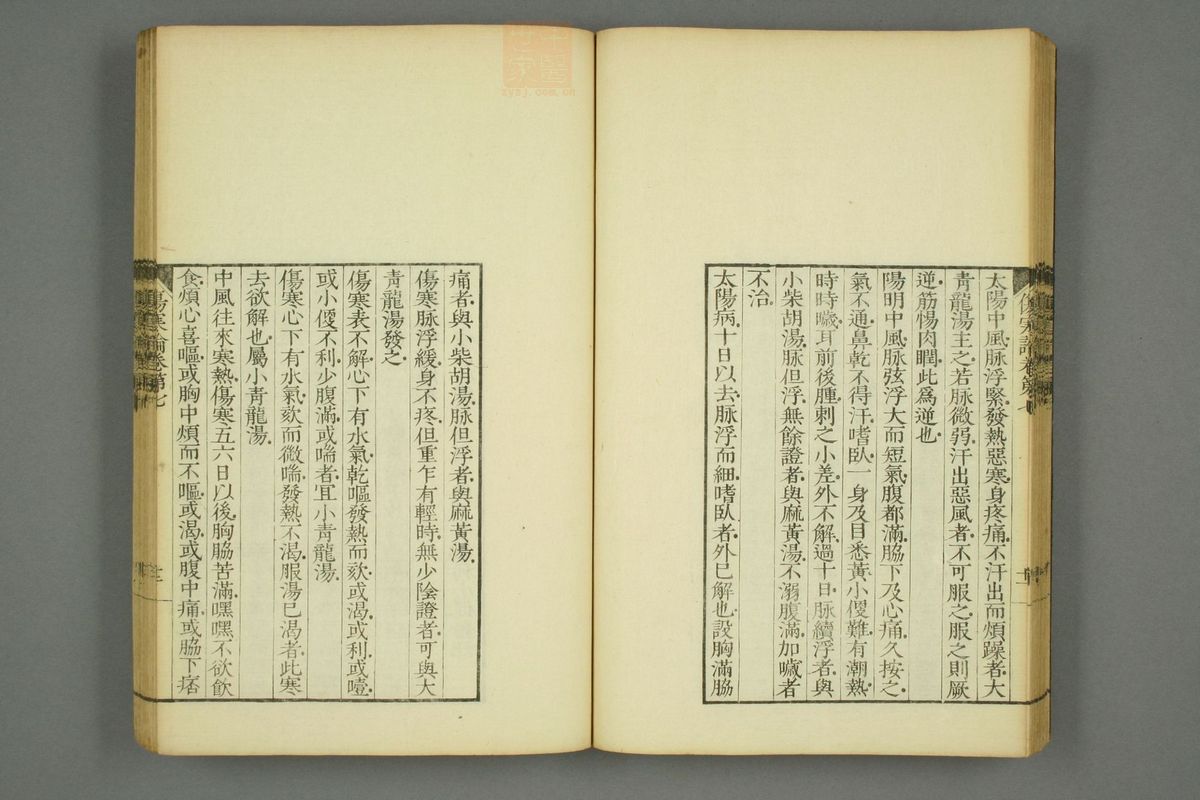 太陽中風脉浮緊發熱惡寒身疼痛不汗出而煩躁者大
青龍湯主之若脉微弱汗出惡風者不可服之服之則厥
逆筋惕肉瞤此爲逆也
陽明中風脉弦浮大而短氣腹都滿脇下及心痛久按之
氣不通鼻乾不得汗嗜臥一身及目悉黃小便難有潮熱
時時噦耳前後腫刺之小差外不解過十日脉續浮者與
小柴胡湯脉但浮無餘證者與麻黃湯不溺腹滿加噦者
不治
太陽病十日以去脉浮而細嗜臥者外已解也設胸滿脇
痛者與小柴胡湯脉但浮者與麻黃湯
傷寒脉浮緩身不疼但重乍有輕時無少陰證者可與大
青龍湯發之
傷寒表不解心下有水氣乾嘔發熱而欬或渴或利或噎
或小便不利少腹滿或喘者宜小青龍湯
傷寒心下有水氣欬而微喘發熱不渴服湯已渴者此寒
去欲解也屬小青龍湯
中風往來寒熱傷寒五六日以後胸脇苦滿嘿嘿不欲飲
食煩心喜嘔或胸中煩而不嘔或渴或腹中痛或脇下痞
傷寒論卷第七
中醫世家
zysj.com.cn